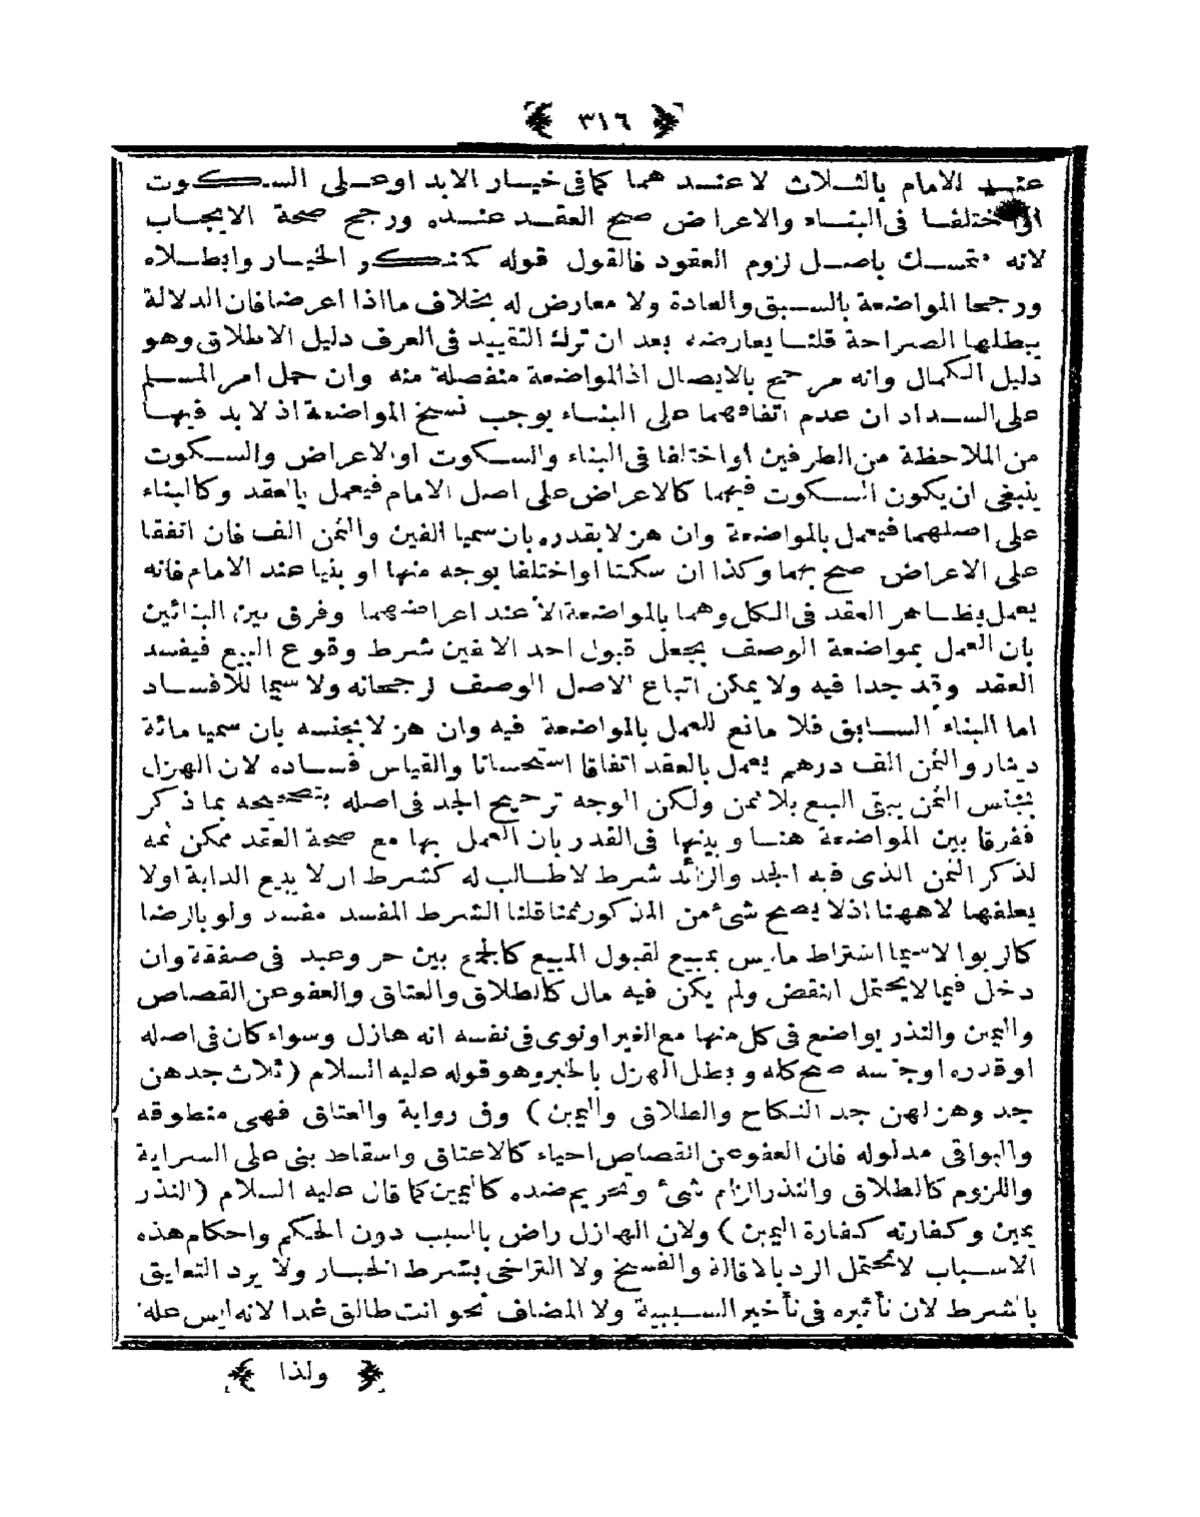 ﴿ ٣١٦ ﴾
عند الامام بالثلاث لا عندهما كما فى خيار الابد او على السكوت
او اختلفا فى البناء والاعراض صح العقد عنده ورجح صحة الايجاب
لانه متمسك باصل لزوم العقود فالقول قوله كمنكر الخيار وابطلاه
ورجحا المواضعة بالسبق والعادة ولا معارض له بخلاف ما اذا اعرضا فان الدلالة
يبطلها الصراحة قلنا يعارضه بعد ان ترك التقييد فى العرف دليل الاطلاق وهو
دليل الكمال وانه مرجح بالايصال اذ المواضعة منفصلة منه وان حمل امر المسلم
على السداد ان عدم اتفاقهما على البناء يوجب نسخ المواضعة اذ لا بد فيها
من الملاحظة من الطرفين او اختلفا فى البناء والسكوت او الاعراض والسكوت
ينبغى ان يكون السكوت فيهما كالاعراض على اصل الامام فيعمل بالعقد وكالبناء
على اصلهما فيعمل بالمواضعة وان هزلا بقدره بان سميا الفين والثمن الف فان اتفقا
على الاعراض صح بهما وكذا ان سكتا او اختلفا بوجه منها او بنيا عند الامام فانه
يعمل بظاهر العقد فى الكل وهما بالمواضعة الا عند اعراضهما وفرق بين البنائين
بان العمل بمواضعة الوصف يجعل قبول احد الالفين شرط وقوع البيع فيفسد
العقد وقد جدا فيه ولا يمكن اتباع الاصل الوصف لرجحانه ولا سيما للافساد
اما البناء السابق فلا مانع للعمل بالمواضعة فيه وان هزلا بجنسه بان سميا مائة
دينار والثمن الف درهم يعمل بالعقد اتفاقا استحسانا والقياس فساده لان الهزل
بجنس الثمن يبقى البيع بلا ثمن ولكن الوجه ترجيح الجد فى اصله بتصحيحه بما ذكر
ففرقا بين المواضعة هنا وبينها فى القدر بان العمل بها مع صحة العقد ممكن ثمه
لذكر الثمن الذى فيه الجد والزائد شرط لا طالب له كشرط ان لا يبيع الدابة اولا
يعلفها لا ههنا اذ لا يصح شئ من المذكور ثمنا قلنا الشرط المفسد مفسد ولو بالرضا
كالربوا لا سيما اشتراط ما ليس بمبيع لقبول المبيع كالجمع بين حر وعبد فى صفقة وان
دخل فيما لا يحتمل النقض ولم يكن فيه مال كالطلاق والعتاق والعفو عن القصاص
واليمين والنذر يواضع فى كل منها مع الغير او نوى فى نفسه انه هازل وسواء كان فى اصله
او قدره او جنسه صح كله وبطل الهزل بالخبر وهو قوله عليه السلام (ثلاث جدهن
جد وهزلهن جد النكاح والطلاق واليمين) وفى رواية والعتاق فهى منطوقه
والبواقى مدلوله فان العفو عن القصاص احياء كالاعتاق واسقاط بنى على السراية
واللزوم كالطلاق والنذر الزام شئ وتحريم ضده كاليمين كما قال عليه السلام (النذر
يمين وكفارته كفارة اليمين) ولان الهازل راض بالسبب دون الحكم واحكام هذه
الاسباب لا تحتمل الرد بالاقالة والفسخ ولا التراخى بشرط الخيار ولا يرد التعليق
بالشرط لان تأثيره فى تأخير السببية ولا المضاف نحو انت طالق غدا لانه ليس علة
﴿ ولذا ﴾